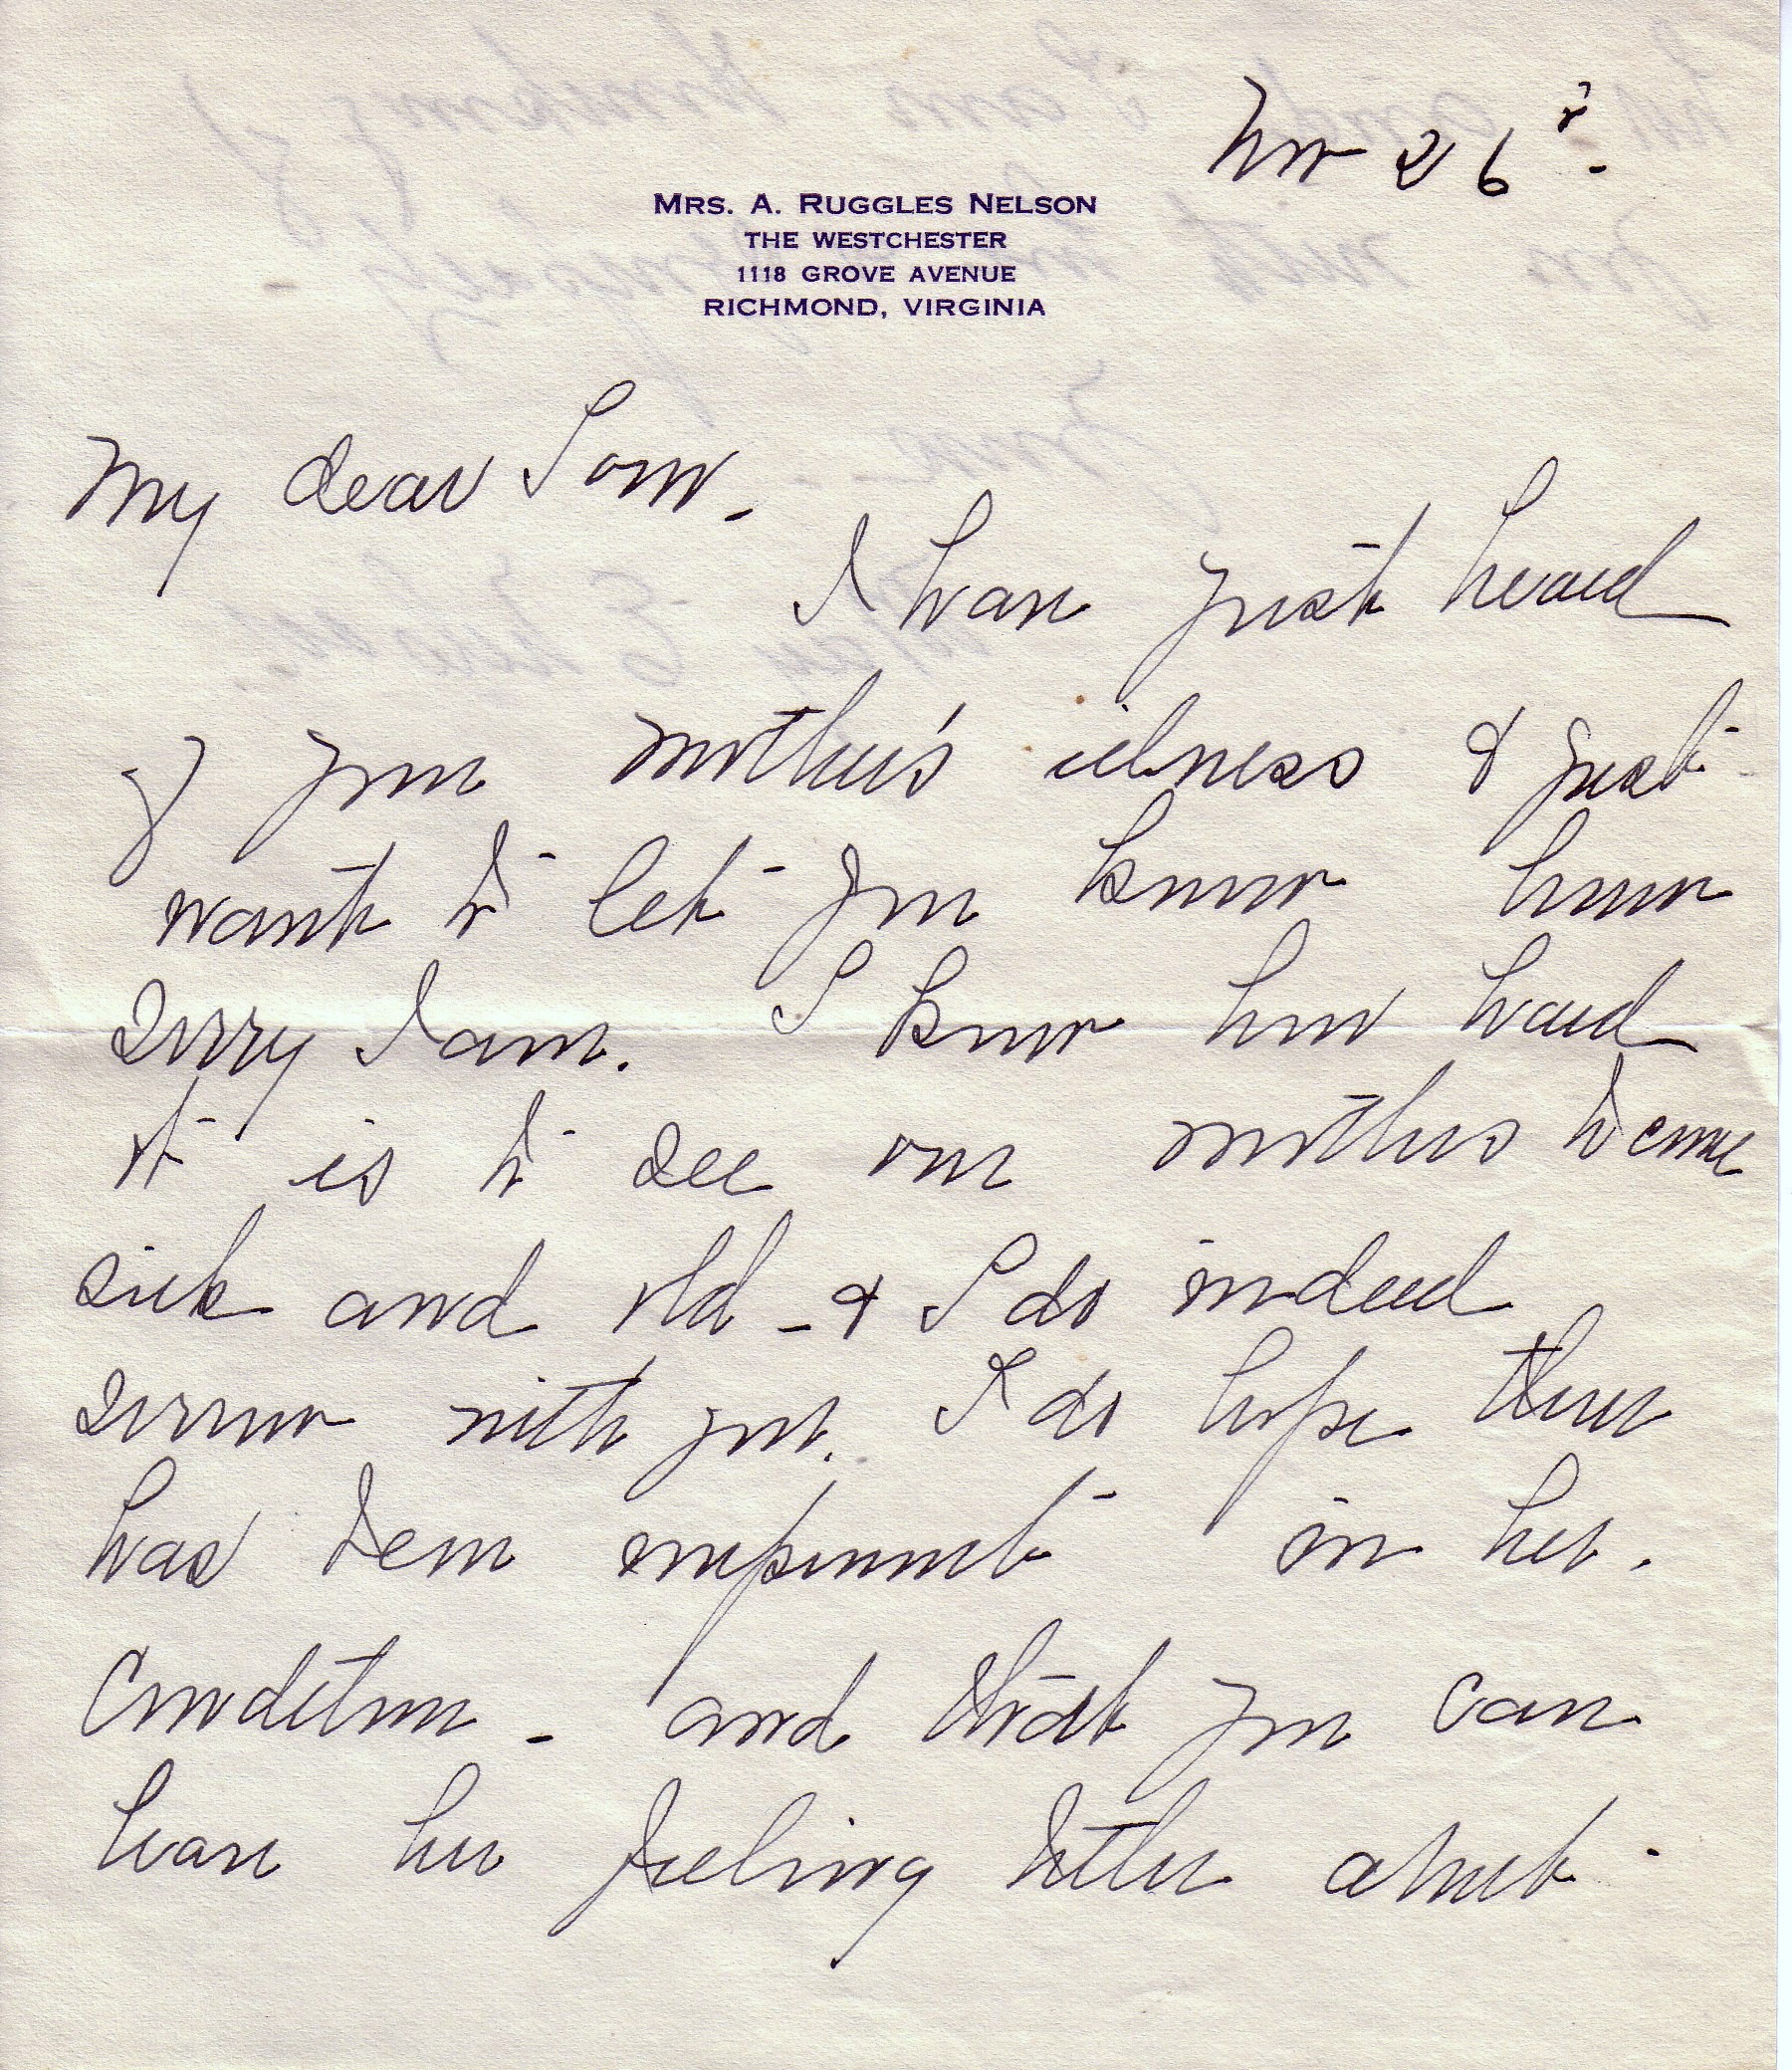 Nov 26
MRS. A. RUGGLES NELSON
THE WESTCHESTER
1118 GROVE AVENUE
RICHMOND, VIRGINIA
My dear Tom -
I have just heard
of your mother's illness & just
want to let you know how
sorry I am. I know how hard
it is to see our mothers become
sick and old - & I do indeed
sorrow with you. I do hope there
has been improvement in her
condition - and that you can
have her feeling better about